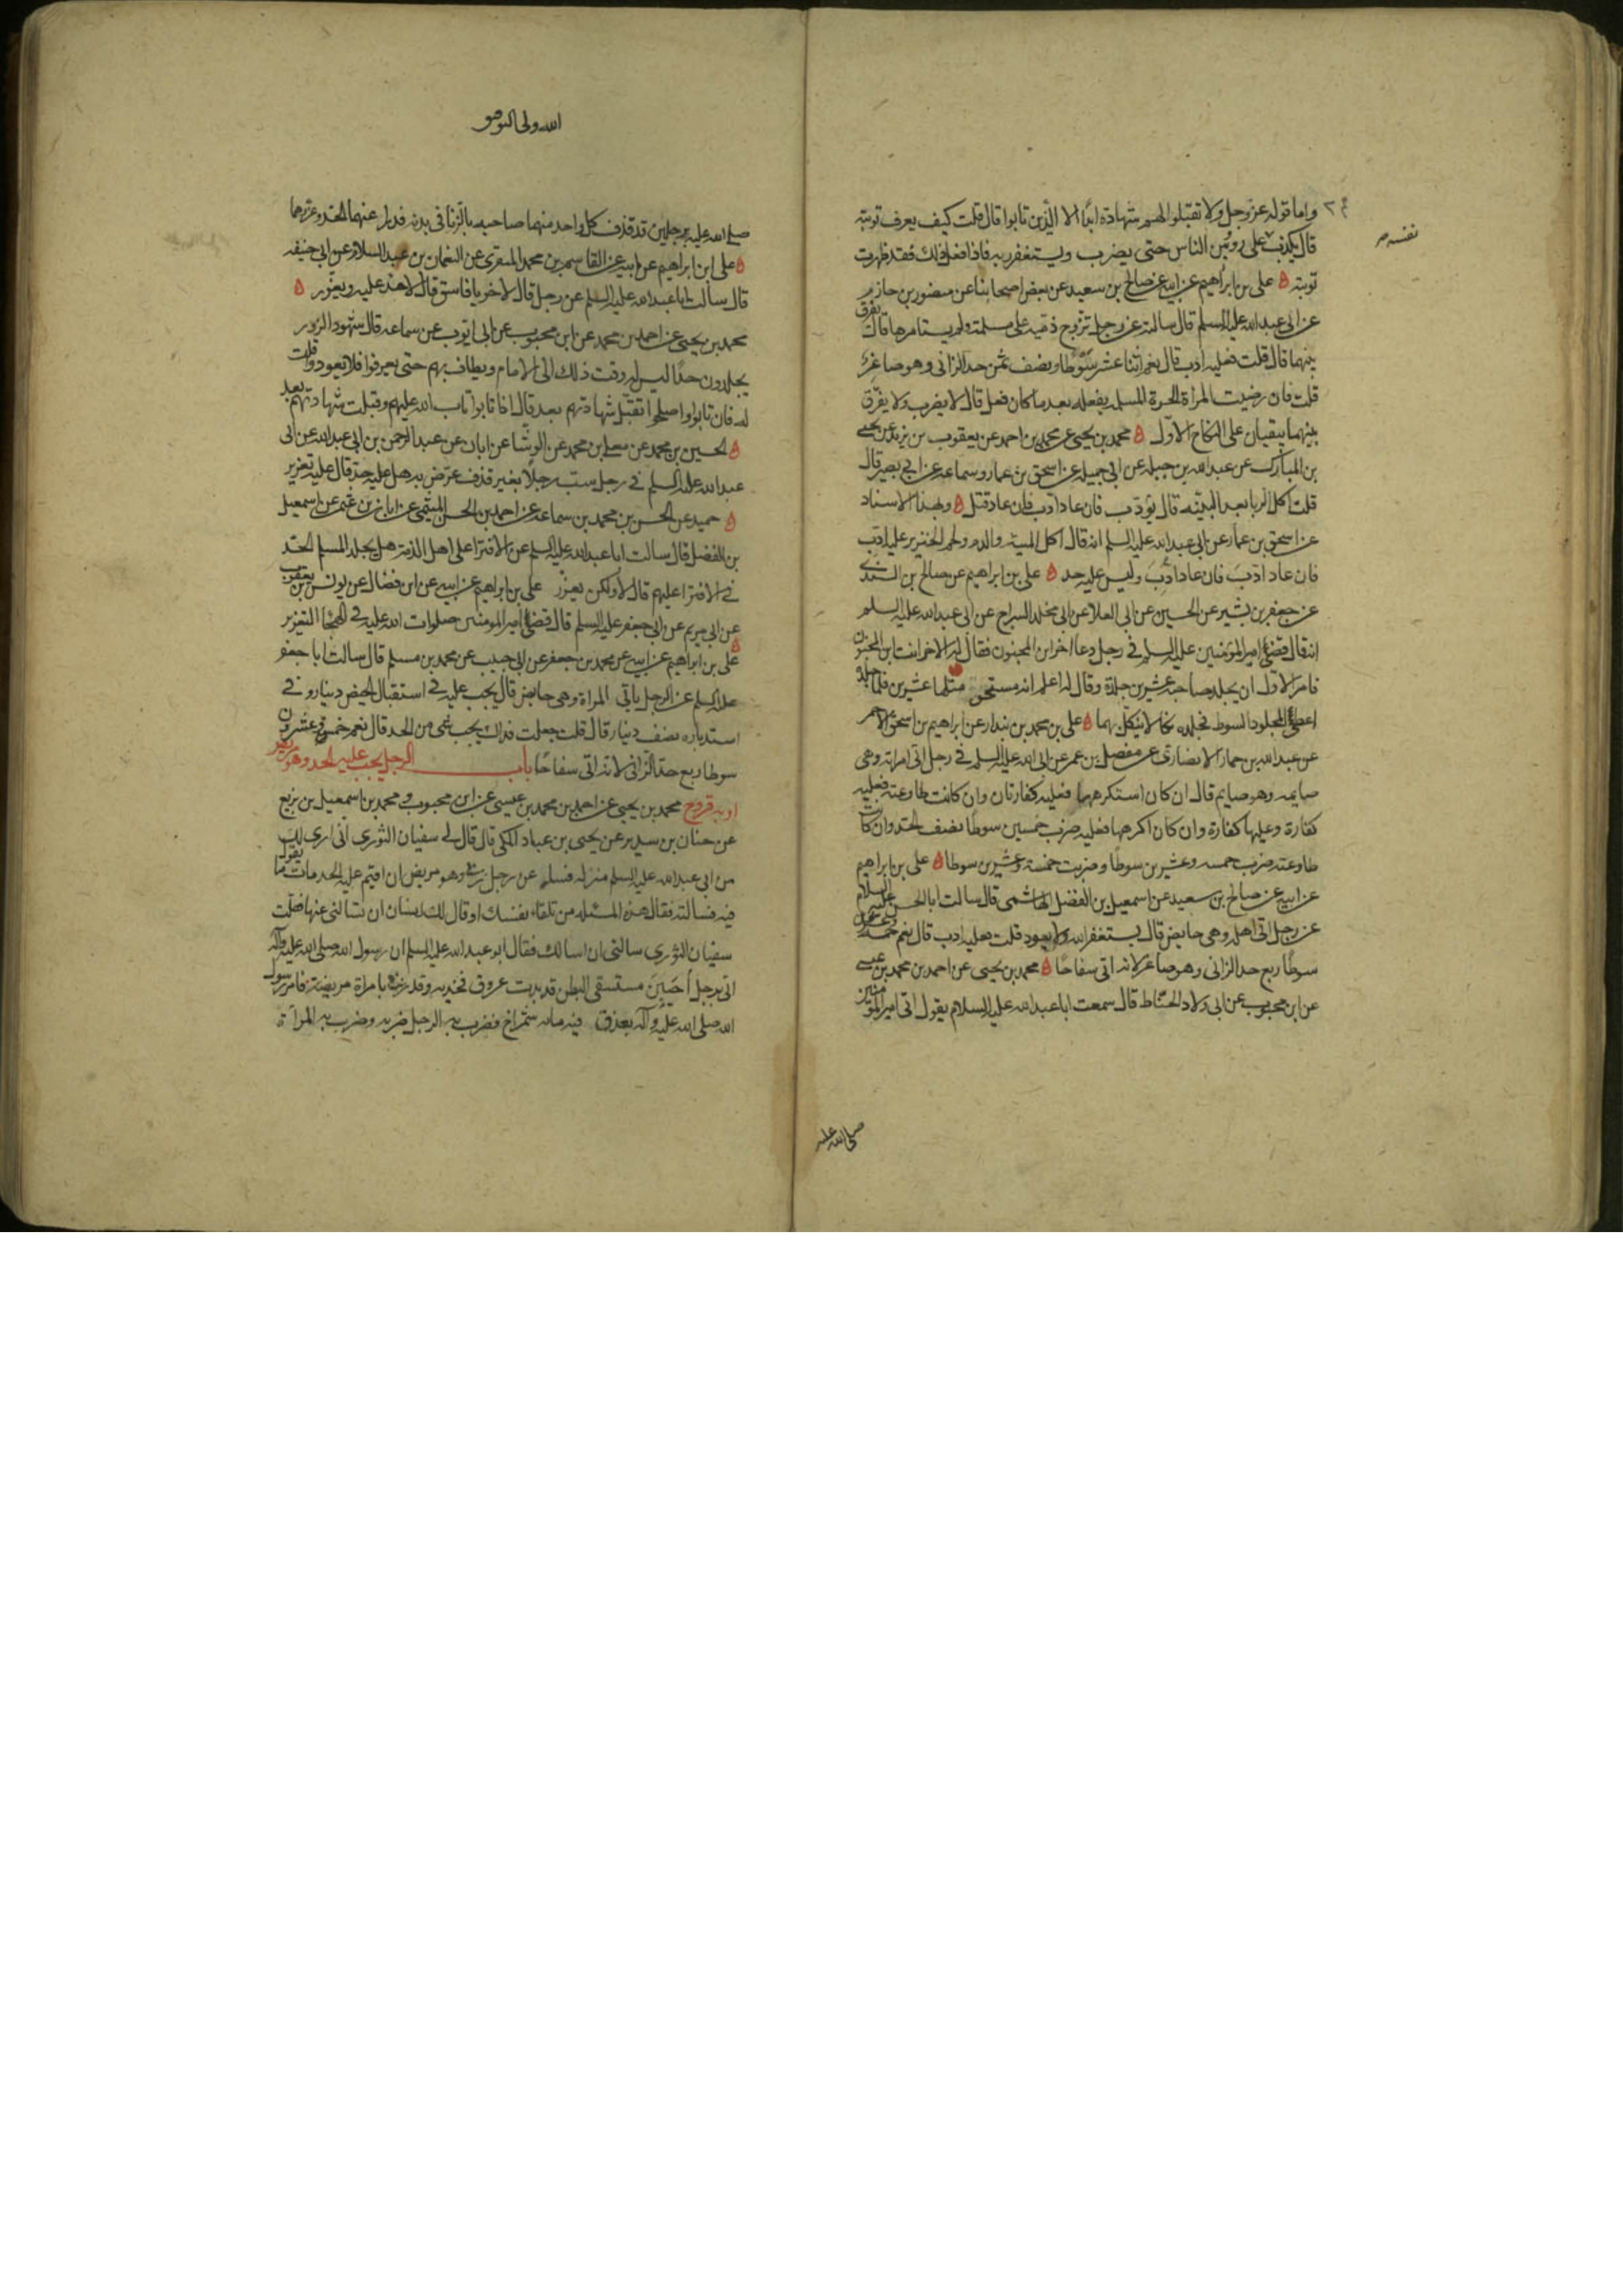 واما قوله عز وجل ولا تقبلوا لهم شهادة ابدا الا الذين تابوا قال قلت كيف يعرف توبته
نفسه
قال يكذب على رؤس الناس حتى يضرب ويستغفر ربه فاذا فعل ذلك فقد ظهرت
توبته ه على بن ابراهيم عن ابيه عن صالح بن سعيد عن بعض اصحابنا عن منصور بن حازم
عن ابى عبد الله عليه السلم قال سالته عن رجل تزوج ذمية على مسلمة ولم يستامرها قال يفرق
بينهما قال قلت فعليه ادب قال نعم اثنا عشر سوطا ونصف ثمن حد الزانى وهو صاغر
قلت فان رضيت المراة الحرة المسلمه بفعله بعد ما كان فعل قال لا يضرب ولا يفرق
بينهما يبقيان على النكاح الاول ه محمد بن يحيى عن محمد بن احمد عن يعقوب بن يزيد عن يحيى
بن المبارك عن عبد الله بن جبله عن ابى جميله عن اسحق بن عمار وسماعه عن ابى بصير قال
قلت اكل الربا بعد البينه قال يؤدب فان عاد ادب فان عاد قتل ه وبهذا الاسناد
عن اسحق بن عمار عن ابى عبد الله عليه السلم انه قال اكل الميته والدم ولحم الخنزير عليه ادب
فان عاد ادب فان عاد ادب وليس عليه حد ه على بن ابراهيم عن صالح بن السندى
عن جعفر بن بشير عن الحسين عن ابى العلا عن ابى مخلد السراج عن ابى عبد الله عليه السلم
انه قال قضى امير المؤمنين عليه السلم فى رجل دعا اخر ابن المجنون فقال له الاخر انت ابن المجنون
فامر الاول ان يجلد صاحبه عشرين جلدة وقال له اعلم انه مستحق مثلها عشرين فلما جلده
اعطى المجلود السوط فجلده نكالا ينكل بهما ه على بن محمد بن بندار عن ابراهيم بن اسحق الاحمر
عن عبد الله بن حماد الانصارى عن مفضل بن عمر عن ابى عبد الله عليه السلم فى رجل اتى امراته وهى
صايمه وهو صايم قال ان كان استكرهها فعليه كفارتان وان كانت طاوعته فعليه
كفارة وعليها كفارة وان كان اكرهها فعليه ضرب خمسين سوطا نصف الحد وان كانت
طاوعته ضرب خمسه وعشرين سوطا وضربت خمسة وعشرين سوطا ه على بن ابراهيم
عن ابيه عن صالح بن سعيد عن اسمعيل بن الفضل الهاشمى قال سالت ابا الحسن عليه السلام
عن رجل اتى اهله وهى حايض قال يستغفر الله ولا يعود قلت فعليه ادب قال نعم خمسه وعشرون
سوطا ربع حد الزانى وهو صاغر لانه اتى سفاحا ه محمد بن يحيى عن احمد بن محمد بن عيسى
عن ابن محبوب عن ابى ولاد الحناط قال سمعت ابا عبد الله عليه السلام يقول اتى امير المؤمنين
صلى الله عليه
الله ولى التوفيق
صلى الله عليه برجلين قد قذف كل واحد منهما صاحبه بالزنا فى بدنه فدرا عنهما الحد وعزرهما
ه على ابن ابراهيم عن ابيه عن القاسم بن محمد المنقرى عن النعمان بن عبد السلام عن ابى حنيفه
قال سالت ابا عبد الله عليه السلم عن رجل قال لاخر يا فاسق قال لا حد عليه ويعزر ه
محمد بن يحيى عن احمد بن محمد عن ابن محبوب عن ابى ايوب عن سماعه قال شهود الزور
يجلدون حدا ليس له وقت ذلك الى الامام ويطاف بهم حتى يعرفوا فلا يعودوا قلت
له فان تابوا واصلحوا تقبل شهادتهم بعد قال اذا تابوا تاب الله عليهم وقبلت شهادتهم بعد
ه الحسين بن محمد عن معلى بن محمد عن الوشا عن ابان عن عبد الرحمن بن ابى عبد الله عن ابى
عبد الله عليه السلم فى رجل سب رجلا بغير قذف عرض به هل عليه حد قال عليه تعزير
ه حميد عن الحسن بن محمد بن سماعه عن احمد بن الحسن الميثمى عن ابان بن عثمن عن اسمعيل
بن الفضل قال سالت ابا عبد الله عليه السلم عن الافترا على اهل الذمة هل يجلد المسلم الحد
فى الافترا عليهم قال لا ولكن يعزر على بن ابراهيم عن ابيه عن ابن فضال عن يونس بن يعقوب
عن ابى مريم عن ابى جعفر عليه السلم قال قضى امير المومنين صلوات الله عليه فى الهجا التعزير
ه على بن ابراهيم عن ابيه عن محمد بن جعفر عن ابى حبيب عن محمد بن مسلم قال سالت ابا جعفر
عليه السلم عن الرجل ياتى المراة وهى حايض قال يجب عليه فى استقبال الحيض دينار وفى
استدباره نصف دينار قال قلت جعلت فداك يجب شى من الحد قال نعم خمس وعشرون
سوطا ربع حد الزانى لانه اتى سفاحا باب الرجل يجب عليه الحد وهو مريض
او به قروح محمد بن يحيى عن احمد بن محمد بن عيسى عن ابن محبوب ومحمد بن اسمعيل بن بزيع
عن حنان بن سدير عن يحيى بن عباد المكى قال قال لى سفيان الثورى انى ارى لك
من ابى عبد الله عليه السلم منزله فسله عن رجل زنى وهو مريض ان اقيم عليه الحد مات ما يقول
فيه فسالته فقال هذه المسئله من تلقاء نفسك او قال لك انسان ان تسالنى عنها فقلت
سفيان الثورى سالنى ان اسالك فقال ابو عبد الله عليه السلم ان رسول الله صلى الله عليه وآله
اتى برجل احبين مستسقى البطن قد بدت عروق فخذيه وقد زنى بامراة مريضة فامر رسول
الله صلى الله عليه وآله بعذق فيه مايه شمراخ فضرب به الرجل ضربه وضرب به المراة